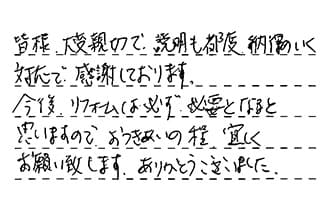 皆様、大変親切で、説明も都度、納得のいく
対応で感謝しております。
今後、リフォームは必ず必要となると
思いますので、おつきあいの程、宜しく
お願い致します。ありがとうございました。